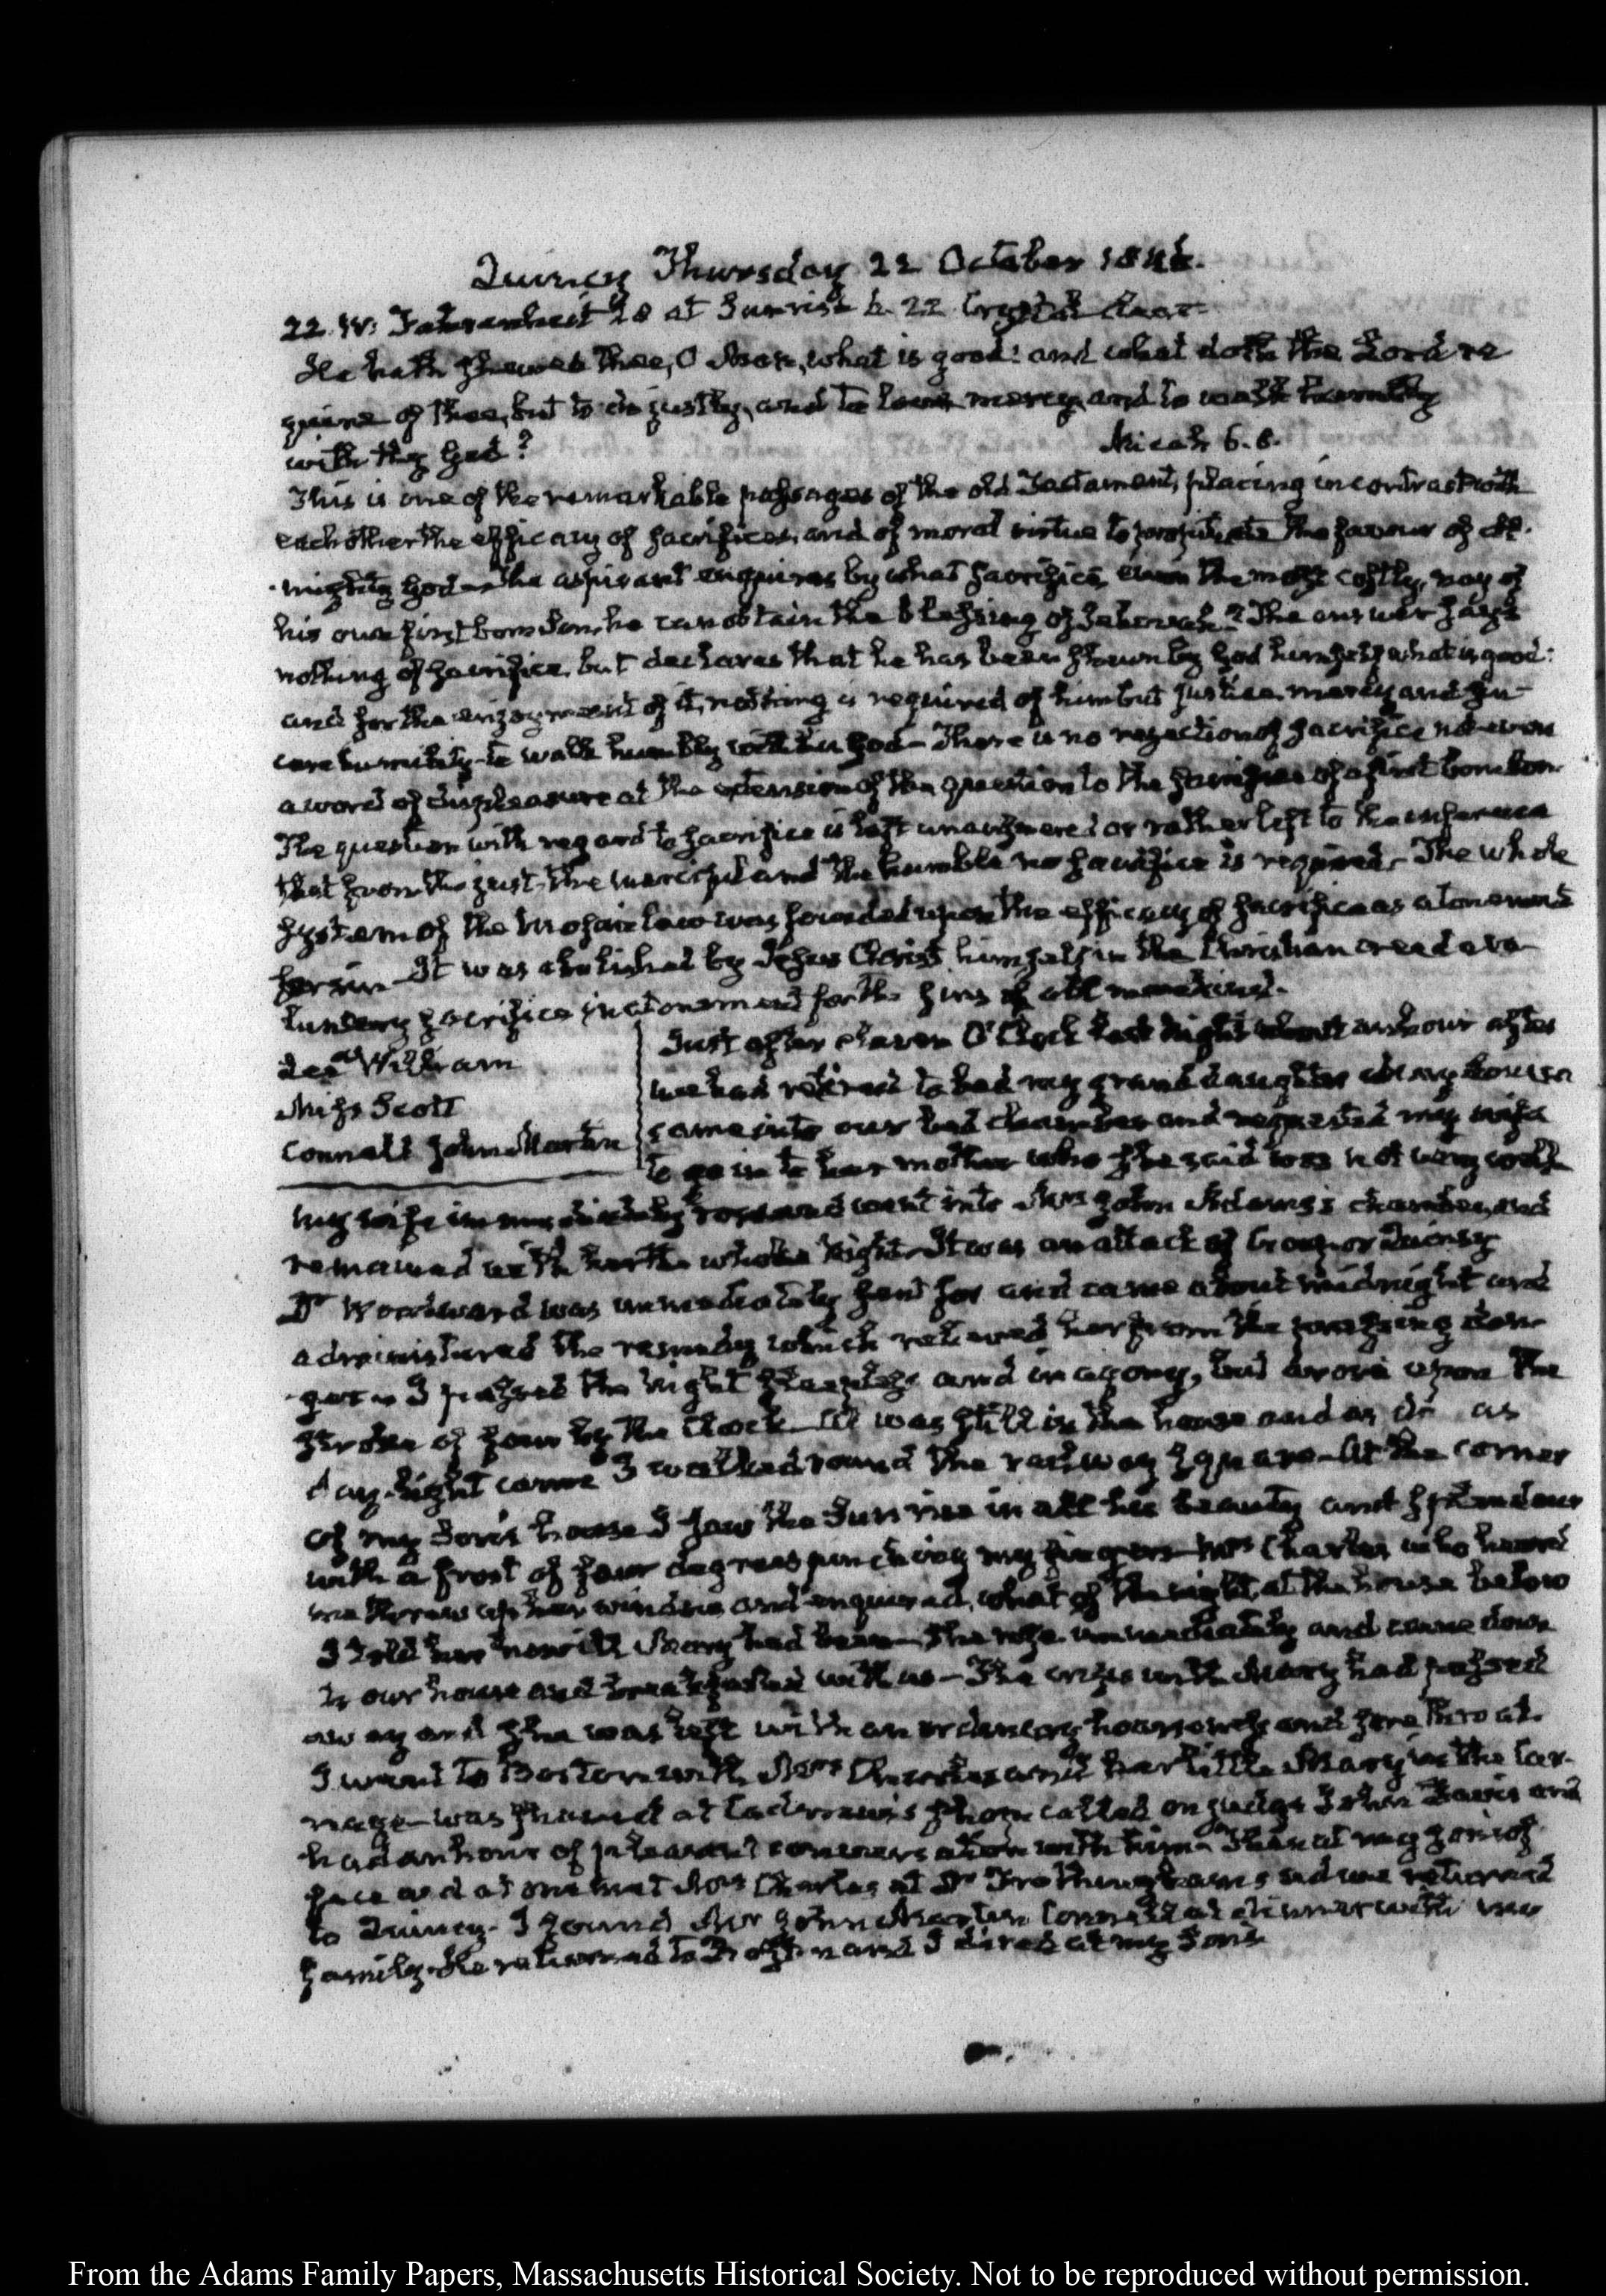 Quincy Thursday 22 October 1846.
22. IV. Fahrenheit 28 at Sunrise 6.22 Crystal clear
He hath shewed thee, O Man, what is good: and what doth the Lord re
quire of thee, but to do justly, and to love mercy, and to walk humbly
with thy God?
Micah 6.8.
This is one of the remarkable passages of the old Testament, placing in contrast with
each other the efficacy of sacrifices, and of moral virtue to propitiate the favour of Al-
mighty God – The aspirant enquires by what sacrifice, even the most costly, nay of
his own first born Son, he can obtain the blessing of Jehovah? The answer says
nothing of sacrifice, but declares that he has been shewn by God himself what is good:
and for the enjoyment of it, nothing is required of him but justice, mercy and sin-
cere humility – to walk humbly with his God – There is no rejection of sacrifice not even
a word of displeasure at the extension of the question to the sacrifice of a first born Son.
The question with regard to sacrifice is left unanswered or rather left to the inference
that from the just, the merciful and the humble no sacrifice is required – The whole
System of the Mosaic law was founded upon the efficacy of sacrifice as atonement
for sin – It was abolished by Jesus Christ himself in the Christian creed a vo-
luntary sacrifice in atonement for the sins of all mankind.
Lee William
Miss Scott
Connell John Martin
Just after eleven O'Clock last night about an hour after
we had retired to bed my grand daughter Mary Louisa
came into our bed chamber and requested my wife
to go in to her mother who she said was not very well
My wife immediately rose and went into Mrs John Adams's chamber, and
remained with her the whole Night – It was an attack of Croup or Quinsy
Dr Woodward was immediately sent for and came about midnight and
administered the remedy which relieved her from the pressing dan-
ger – I passed the night sleepless and in agony, but arose upon the
stroke of four by the Clock – All was still in the house and as as
day-light came I walked round the railway square – At the corner
of my Son's house I saw the Sun rise in all his beauty and splendour
with a frost of four degrees pinching my fingers – Mrs Charles who heard
me threw up her window and enquired, what of the night, at the house below
I told her how ill Mary had been – She rose immediately and came down
to our house and breakfasted with us – The crisis with Mary had passed
away and she was left with an ordinary hoarseness and sore throat.
I went to Boston with Mrs Charles and her little Mary in the Car-
riage – was shaved at shop called on Judge John Davis and
had an hour of pleasant conversation with him – Then at my Son's of
fice and at one met Mrs Charles at Dr Frothingham's and we returned
to Quincy – I found Mr John Martin Connell at dinner with my
family – He returned to Boston and I dined at my Son's
From the Adams Family Papers, Massachusetts Historical Society. Not to be reproduced without permission.